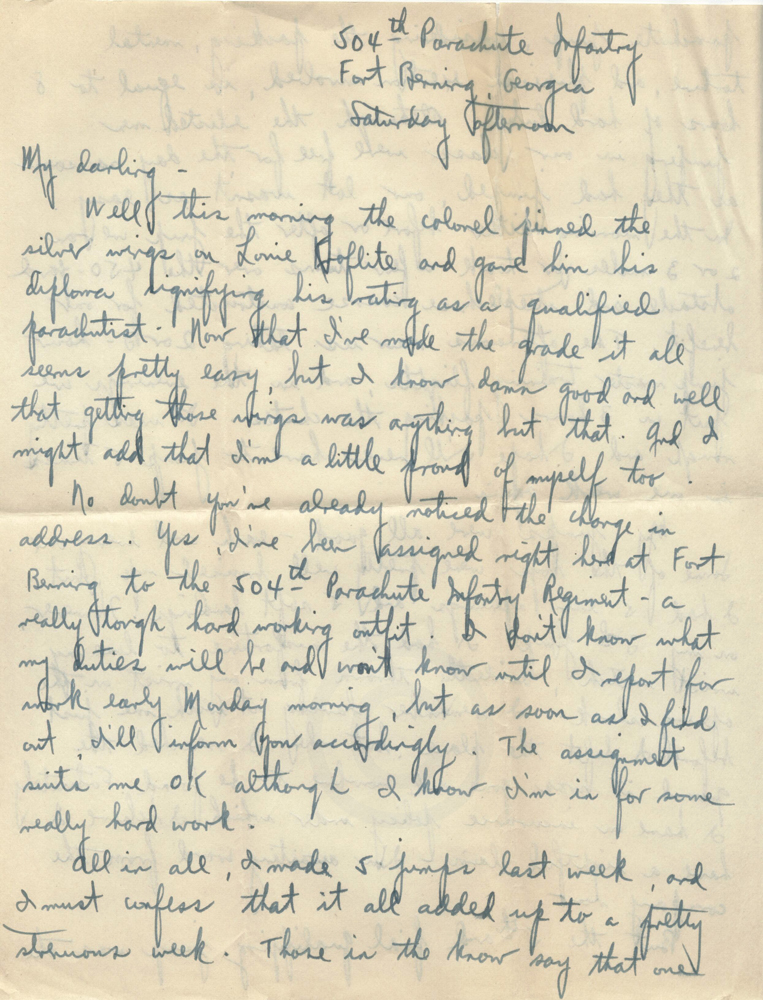 504th Parachute Infantry
Fort Benning, Georgia
Saturday afternoon
My darling -
Well this morning the colonel pinned the
silver wings on Louie Hoflite and gave him his
diploma signifying his rating as a qualified
parachutist. Now that I've made the grade it all
seems pretty easy, but I know damn good and well
that getting those wings was anything but that. And I
might add that I'm a little proud of myself too.
No doubt you've already noticed the change in
address. Yes, I've been assigned right here at Fort
Benning to the 504th Parachute Infantry Regiment - a
really tough hard working outfit. I don't know what
my duties will be and won't know until I report for
work early Monday morning, but as soon as I find
out, I'll inform you accordingly. The assignment
suits me OK although I know I'm in for some
really hard work.
All in all, I made 5 jumps last week, and
I must confess that it all added up to a pretty
strenuous week. Those in the know say that one